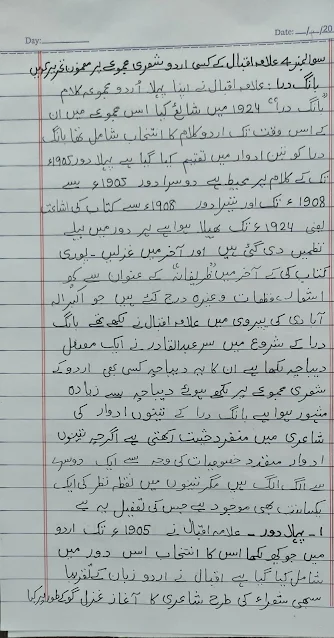 Day: Date: __/__/20
سوال نمبر 4 علامہ اقبال کے کسی اردو شعری مجموعے پر مضمون تحریر کریں
بانگ درا: علامہ اقبال نے اپنا پہلا اُردو مجموعہ کلام
"بانگ درا" 1924 میں شائع کیا اس مجموعے میں ان
کے اس وقت تک اردو کلام کا انتخاب شامل تھا بانگ
درا کو تین ادوار میں تقسیم کیا گیا ہے پہلا دور 1905ء
تک کے کلام پر محیط ہے دوسرا دور 1905ء سے
1908ء تک اور تیسرا دور 1908ء سے کتاب کی اشاعت
یعنی 1924ء تک پھیلا ہوا ہے ہر دور میں پہلے
نظمیں دی گئی ہیں اور آخر میں غزلیں - پوری
کتاب کے آخر میں "ظریفانہ" کے عنوان سے کچھ
اشعار و قطعات وغیرہ درج کئے ہیں جو اکبر الہ
آبادی کی پیروی میں علامہ اقبال نے لکھے تھے بانگ
درا کے شروع میں سر عبدالقادر نے ایک مفصل
دیباچہ لکھا ہے ان کا یہ دیباچہ کسی بھی اردو کے
شعری مجموعے پر لکھے ہوئے دیباچہ سے زیادہ
مشہور ہوا ہے بانگ درا کے تینوں ادوار کی
شاعری میں منفرد حیثیت رکھتی ہے اگرچہ تینوں
ادوار منفرد خصوصیات کی وجہ سے ایک دوسرے
سے الگ الگ ہیں مگر تینوں میں نقطہ نظر کی ایک
یکسانیت بھی موجود ہے جس کی تفصیل یہ ہے
1- پہلا دور - علامہ اقبال نے 1905ء تک اردو
میں جو کچھ لکھا اس کا انتخاب اس دور میں
شامل کیا گیا ہے اقبال نے اردو زبان کے تقریبا
سبھی شعراء کی طرح شاعری کا آغاز غزل گو کے طور پر کیا